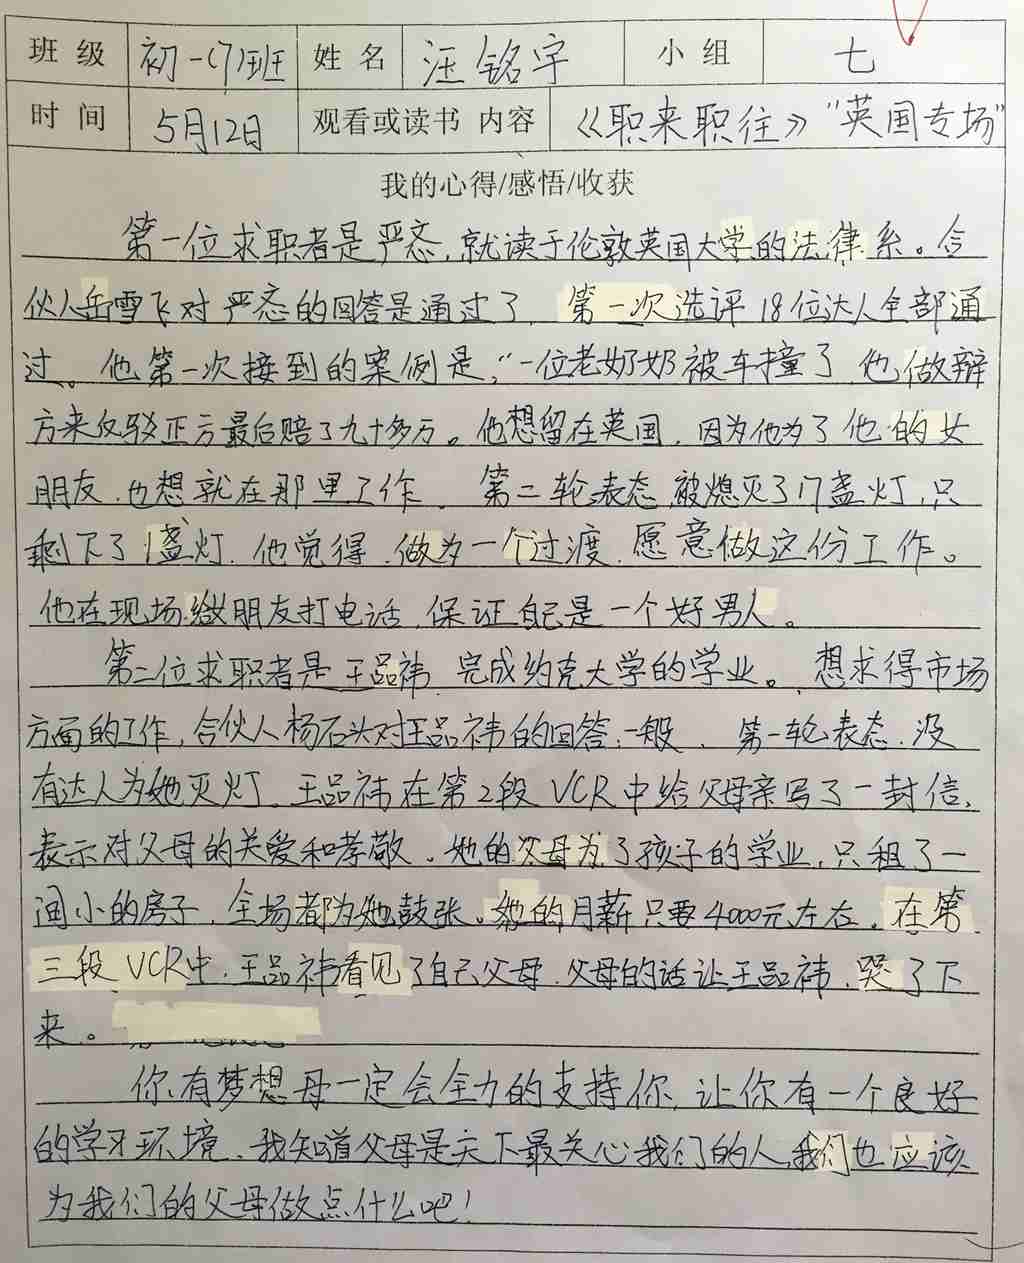 班级 初一(7)班 姓名 汪铭宇 小组 七
时间 5月12日 观看或读书内容 《职来职往》“英国专场”
我的心得/感悟/收获
第一位求职者是严态,就读于伦敦英国大学的法律系。合
伙人岳雪飞对严态的回答是通过了,第一次选评18位达人全部通
过。他第一次接到的案例是,“一位老奶奶被车撞了,他做辩
方来反驳正方最后赔了九十多万。他想留在英国,因为他为了他的女
朋友,也想就在那里工作。第二轮表态,被熄灭了17盏灯,只
剩下了1盏灯,他觉得,做为一个过渡,愿意做这份工作。
他在现场给女朋友打电话,保证自己是一个好男人。
第二位求职者是王品祎,完成约克大学的学业。想求得市场
方面的工作,合伙人杨石头对王品祎的回答一般。第一轮表态,没
有达人为她灭灯,王品祎在第2段VCR中给父母亲写了一封信,
表示对父母的关爱和孝敬。她的父母为了孩子的学业,只租了一
间小的房子,全场都为她鼓张。她的月薪只要4000元左右。在第
三段VCR中,王品祎看见了自己父母,父母的话让王品祎,哭了下
来。
你有梦想母一定会全力的支持你,让你有一个良好
的学习环境。我知道父母是天下最关心我们的人,我们也应该
为我们的父母做点什么吧!